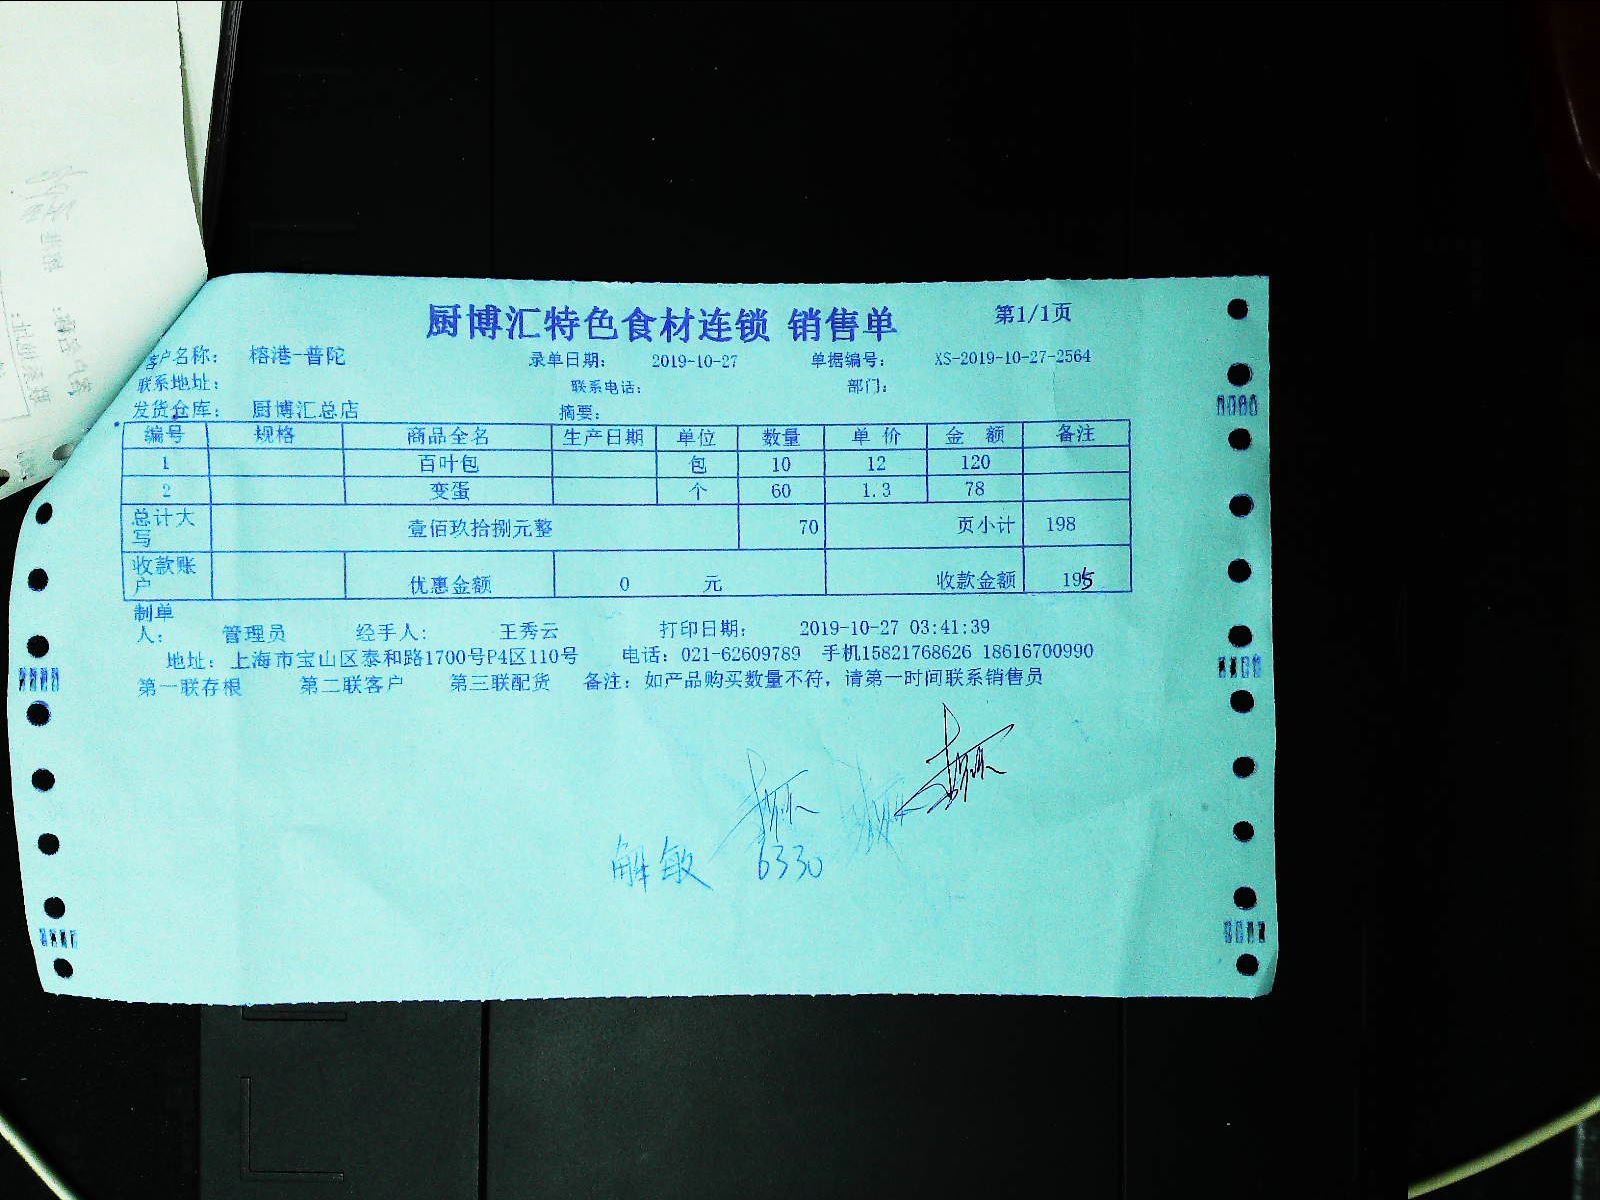 厨博汇特色食材连锁 销售单 第1/1页
客户名称： 榕港-普陀 录单日期： 2019-10-27 单据编号： XS-2019-10-27-2564
联系地址： 联系电话： 部门：
发货仓库： 厨博汇总店 摘要：
编号 规格 商品全名 生产日期 单位 数量 单 价 金 额 备注
1 百叶包 包 10 12 120
2 变蛋 个 60 1.3 78
总计大写 壹佰玖拾捌元整 70 页小计 198
收款账户 优惠金额 0 元 收款金额 195
制单人： 管理员 经手人： 王秀云 打印日期： 2019-10-27 03:41:39
地址：上海市宝山区泰和路1700号P4区110号 电话：021-62609789 手机15821768626 18616700990
第一联存根 第二联客户 第三联配货 备注：如产品购买数量不符，请第一时间联系销售员
解敏 6330